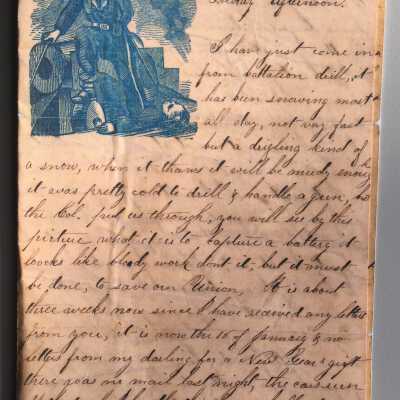 Friday afternoon.
I have just come in
from battalion drill, it
has been snowing most
all day, not very fast
but a drizling kind of
a snow, when it thaws it will be mudy enough
it was pretty cold to drill & handle a gun, but
the Col. put us through, you will see by this
picture what it is to capture a battery it
looks like bloody work dont it, but it must
be done, to save our Union, It is about
three weeks now since I have received any letters
from you, it is now the 16 of January & no
letters from my darling for a New Years gift
there was no mail last night, the cars